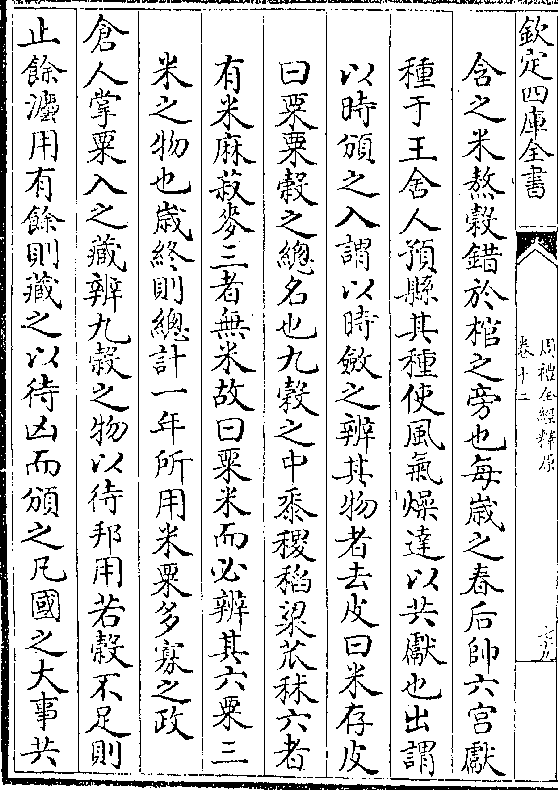 欽定四庫全書
周禮全經釋原
卷十二
含之米熬穀錯於棺之旁也每歲之春后帥六宮獻
種于王舍人預縣其種使風氣燥達以共獻也出謂
以時頒之入謂以時斂之辨其物者去皮曰米存皮
曰粟粟穀之總名也九穀之中黍稷稻梁苽秫六者
有米麻菽麥三者無米故曰粟米而必辨其六粟三
米之物也歲終則總計一年所用米粟多寡之政
倉人掌粟入之藏辨九穀之物以待邦用若穀不足則
止餘灋用有餘則藏之以待凶而頒之凡國之大事共